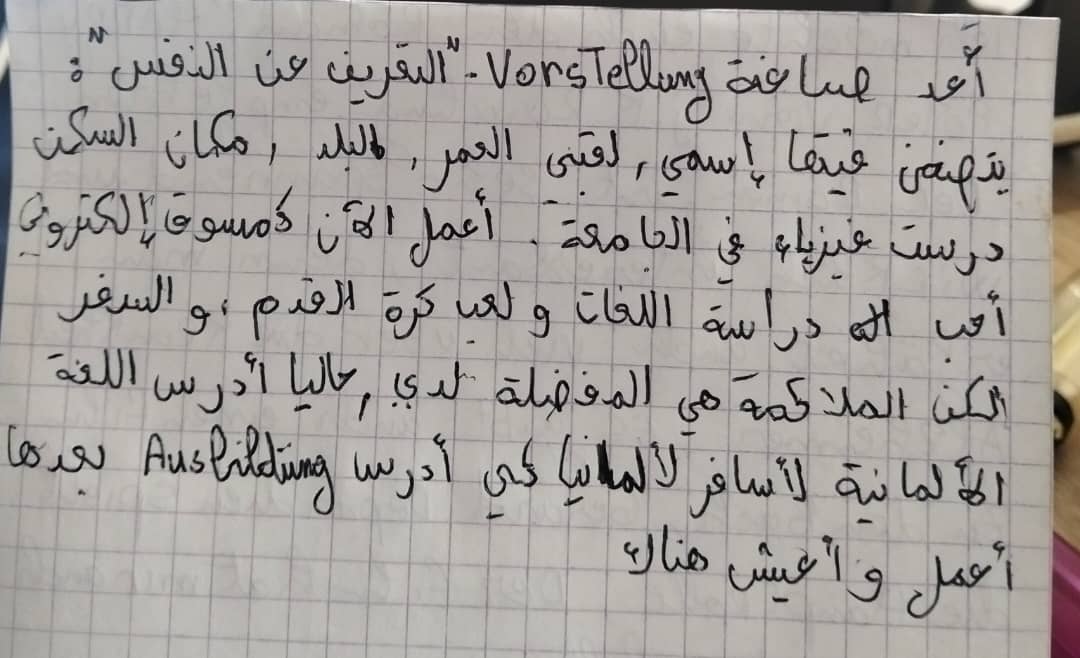 أعد صياغة Vorstellung - "التعريف عن النفس":
يتضمن فيها إسمي، لقبي العمر، البلد، مكان السكن
درست فيزياء في الجامعة. أعمل الآن كمسوق إلكتروني
أحب دراسة اللغات و لعب كرة القدم، و السفر
لكن الملاكمة هي المفضلة لدي، حاليا أدرس اللغة
الألمانية لأسافر لألمانيا كي أدرس Ausbildung بعدها
أعمل و أعيش هناك